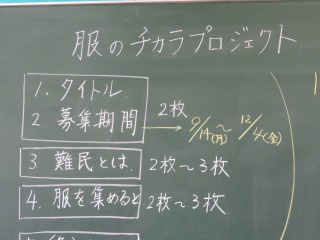 服のチカラプロジェクト
1. タイトル
2. 募集期間 2枚 → 9/14(月)〜12/4(金)
3. 難民とは、 2枚〜3枚
4. 服を集めると 2枚〜3枚